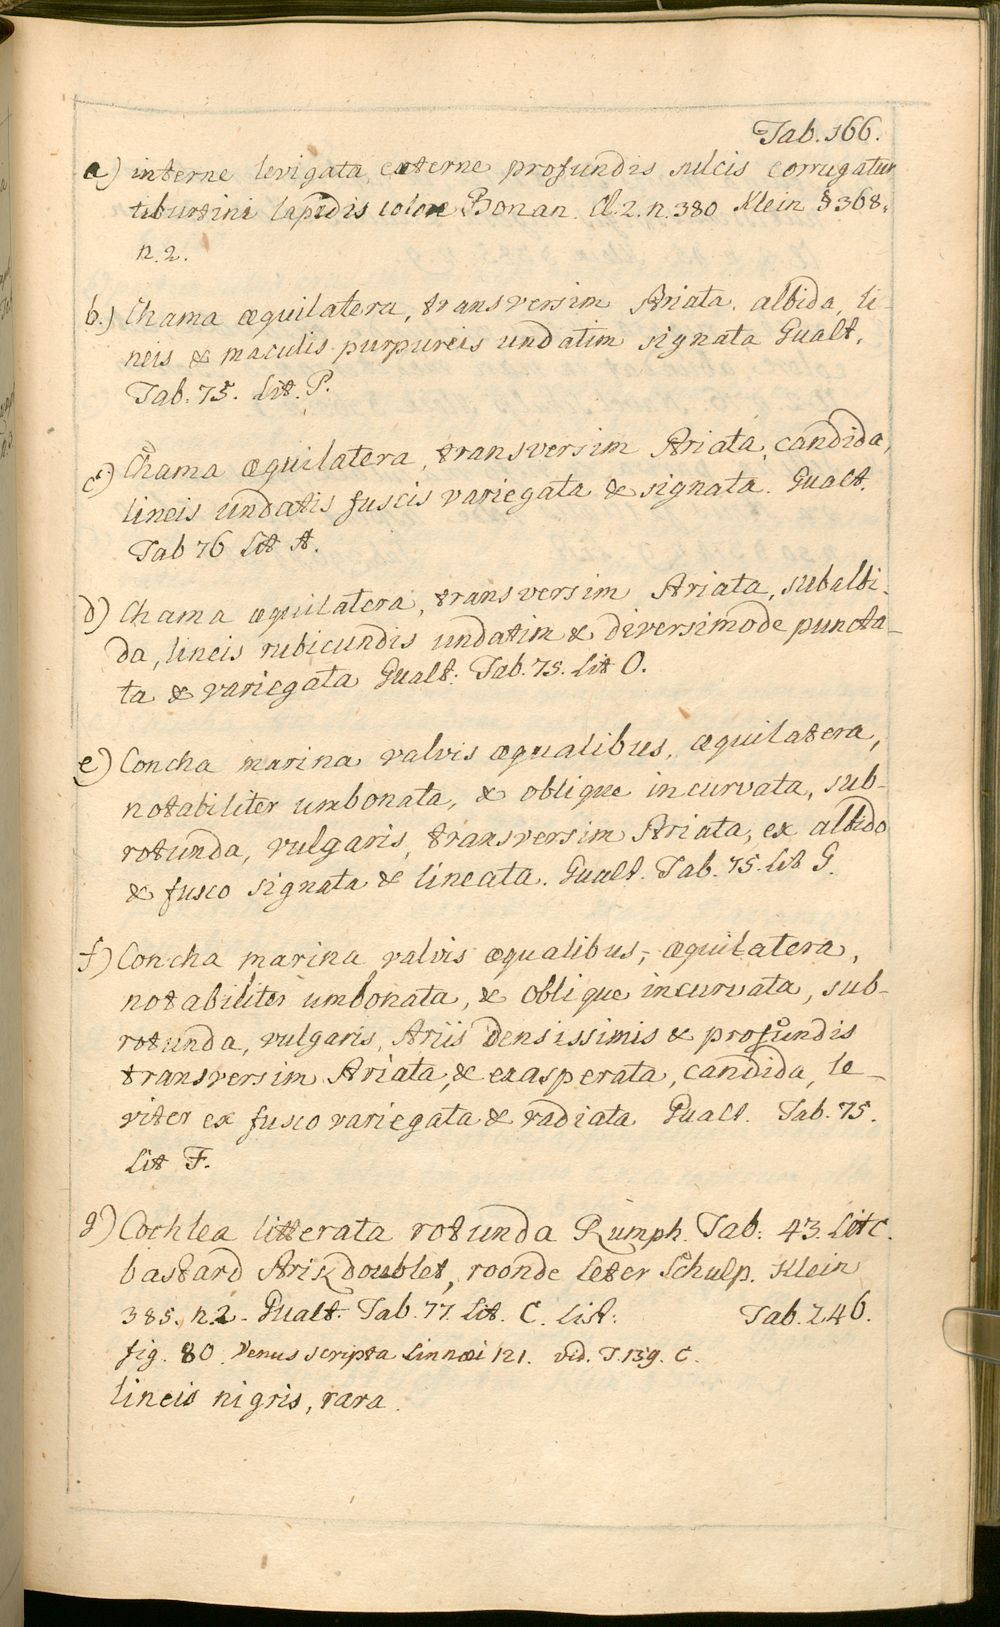 Tab. 166.
a) interne levigata, externe profundis sulcis corrugatur
tiburtini lapidis colore Bonan. Cl. 2. n. 380 Klein § 368.
n. 2.
b.) Chama æquilatera, transversim striata, albida, li-
neis & maculis purpureis undatim signata Gualt.
Tab. 75. Lit. P.
c) Chama æquilatera, transversim striata, candida,
lineis undatis fuscis variegata & signata. Gualt.
Tab 76 Lit A.
d) Chama æquilatera, transversim striata, subalbi-
da, lineis rubicundis undatim & diversimode puncta-
ta & variegata Gualt: Tab. 75. Lit O.
e) Concha marina valvis æqualibus, æquilatera,
notabiliter umbonata, & oblique incurvata, sub-
rotunda, vulgaris, transversim striata, ex albido
& fusco signata & lineata. Gualt. Tab. 75. Lit G.
f) Concha marina valvis æqualibus, æquilatera,
notabiliter umbonata, & oblique incurvata, sub-
rotunda, vulgaris, striis densissimis & profundis
transversim striata, & exasperata, candida, le-
viter ex fusco variegata & radiata Gualt. Tab. 75.
Lit F.
g) Cochlea litterata rotunda Rumph. Tab: 43. Lit C.
bastard strik doublet, roonde leter Schulp. Klein
385. n. 2. Gualt. Tab. 77. Lit. C. List: Tab. 246.
fig. 80. Venus scripta Linnæi 121. vid. T. 139. C.
lineis nigris, rara.